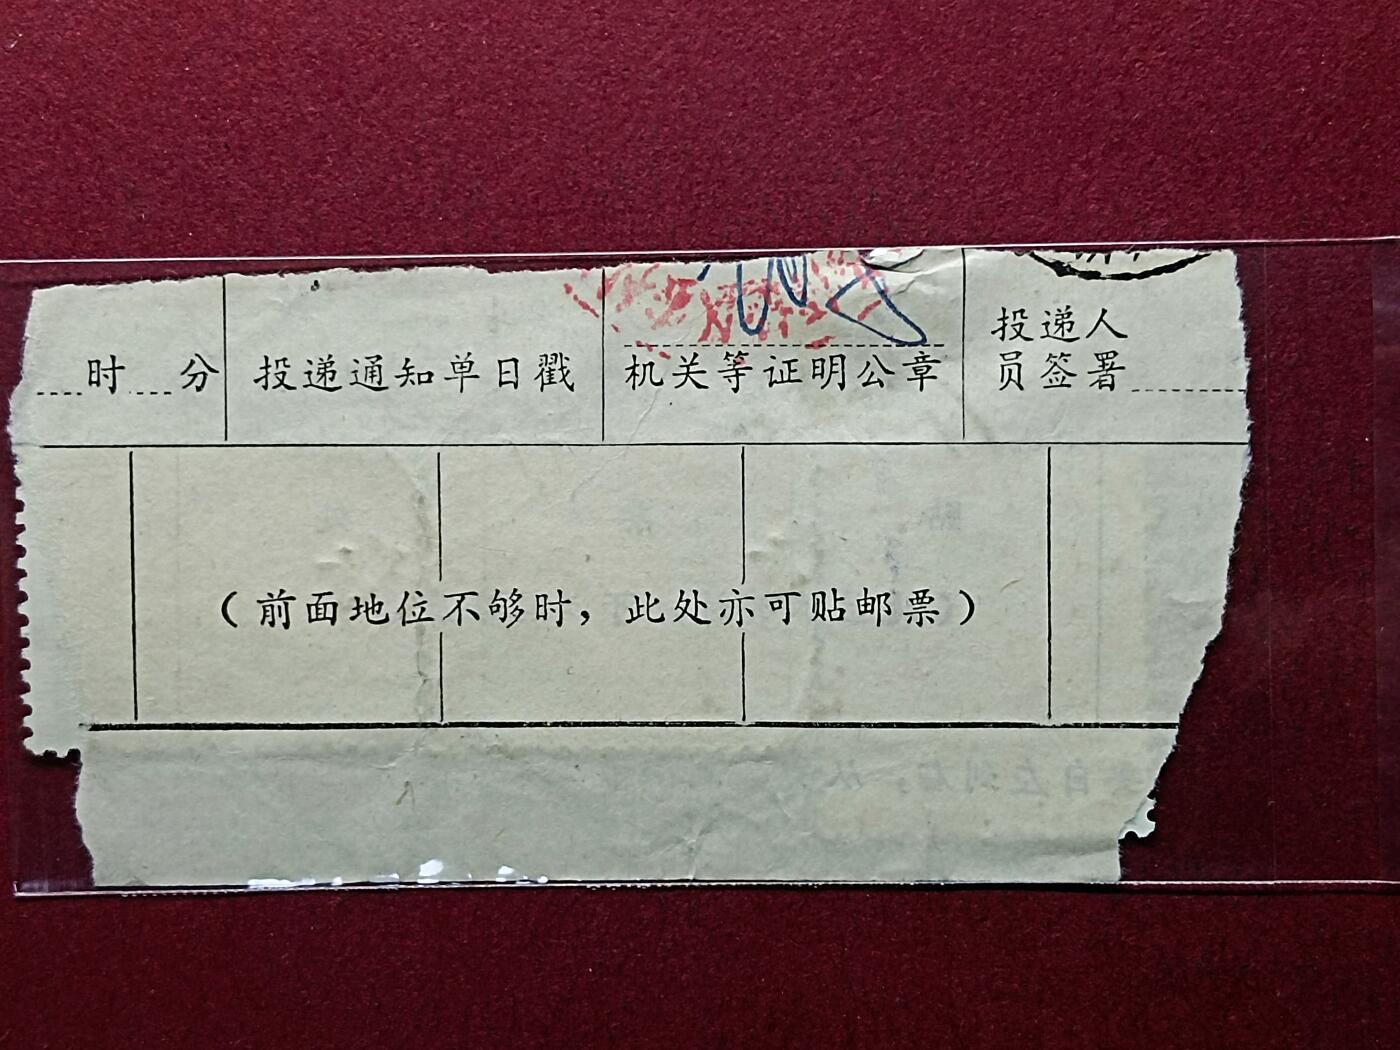 时 分
投递通知单日戳
机关等证明公章
投递人
员签署
（前面地位不够时，此处亦可贴邮票）